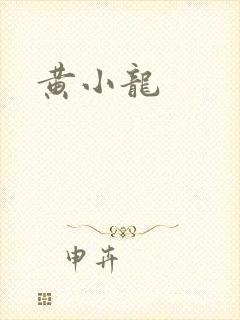 黄小龍
申卉